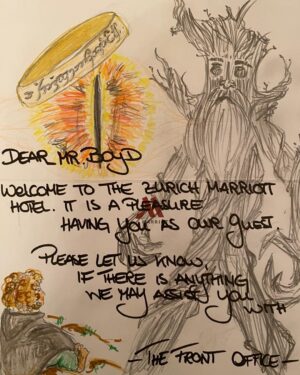 DEAR MR. BOYD
WELCOME TO THE ZURICH MARRIOTT
HOTEL. IT IS A PLEASURE
HAVING YOU AS OUR GUEST.
PLEASE LET US KNOW,
IF THERE IS ANYTHING
WE MAY ASSIST YOU
WITH
- THE FRONT OFFICE -